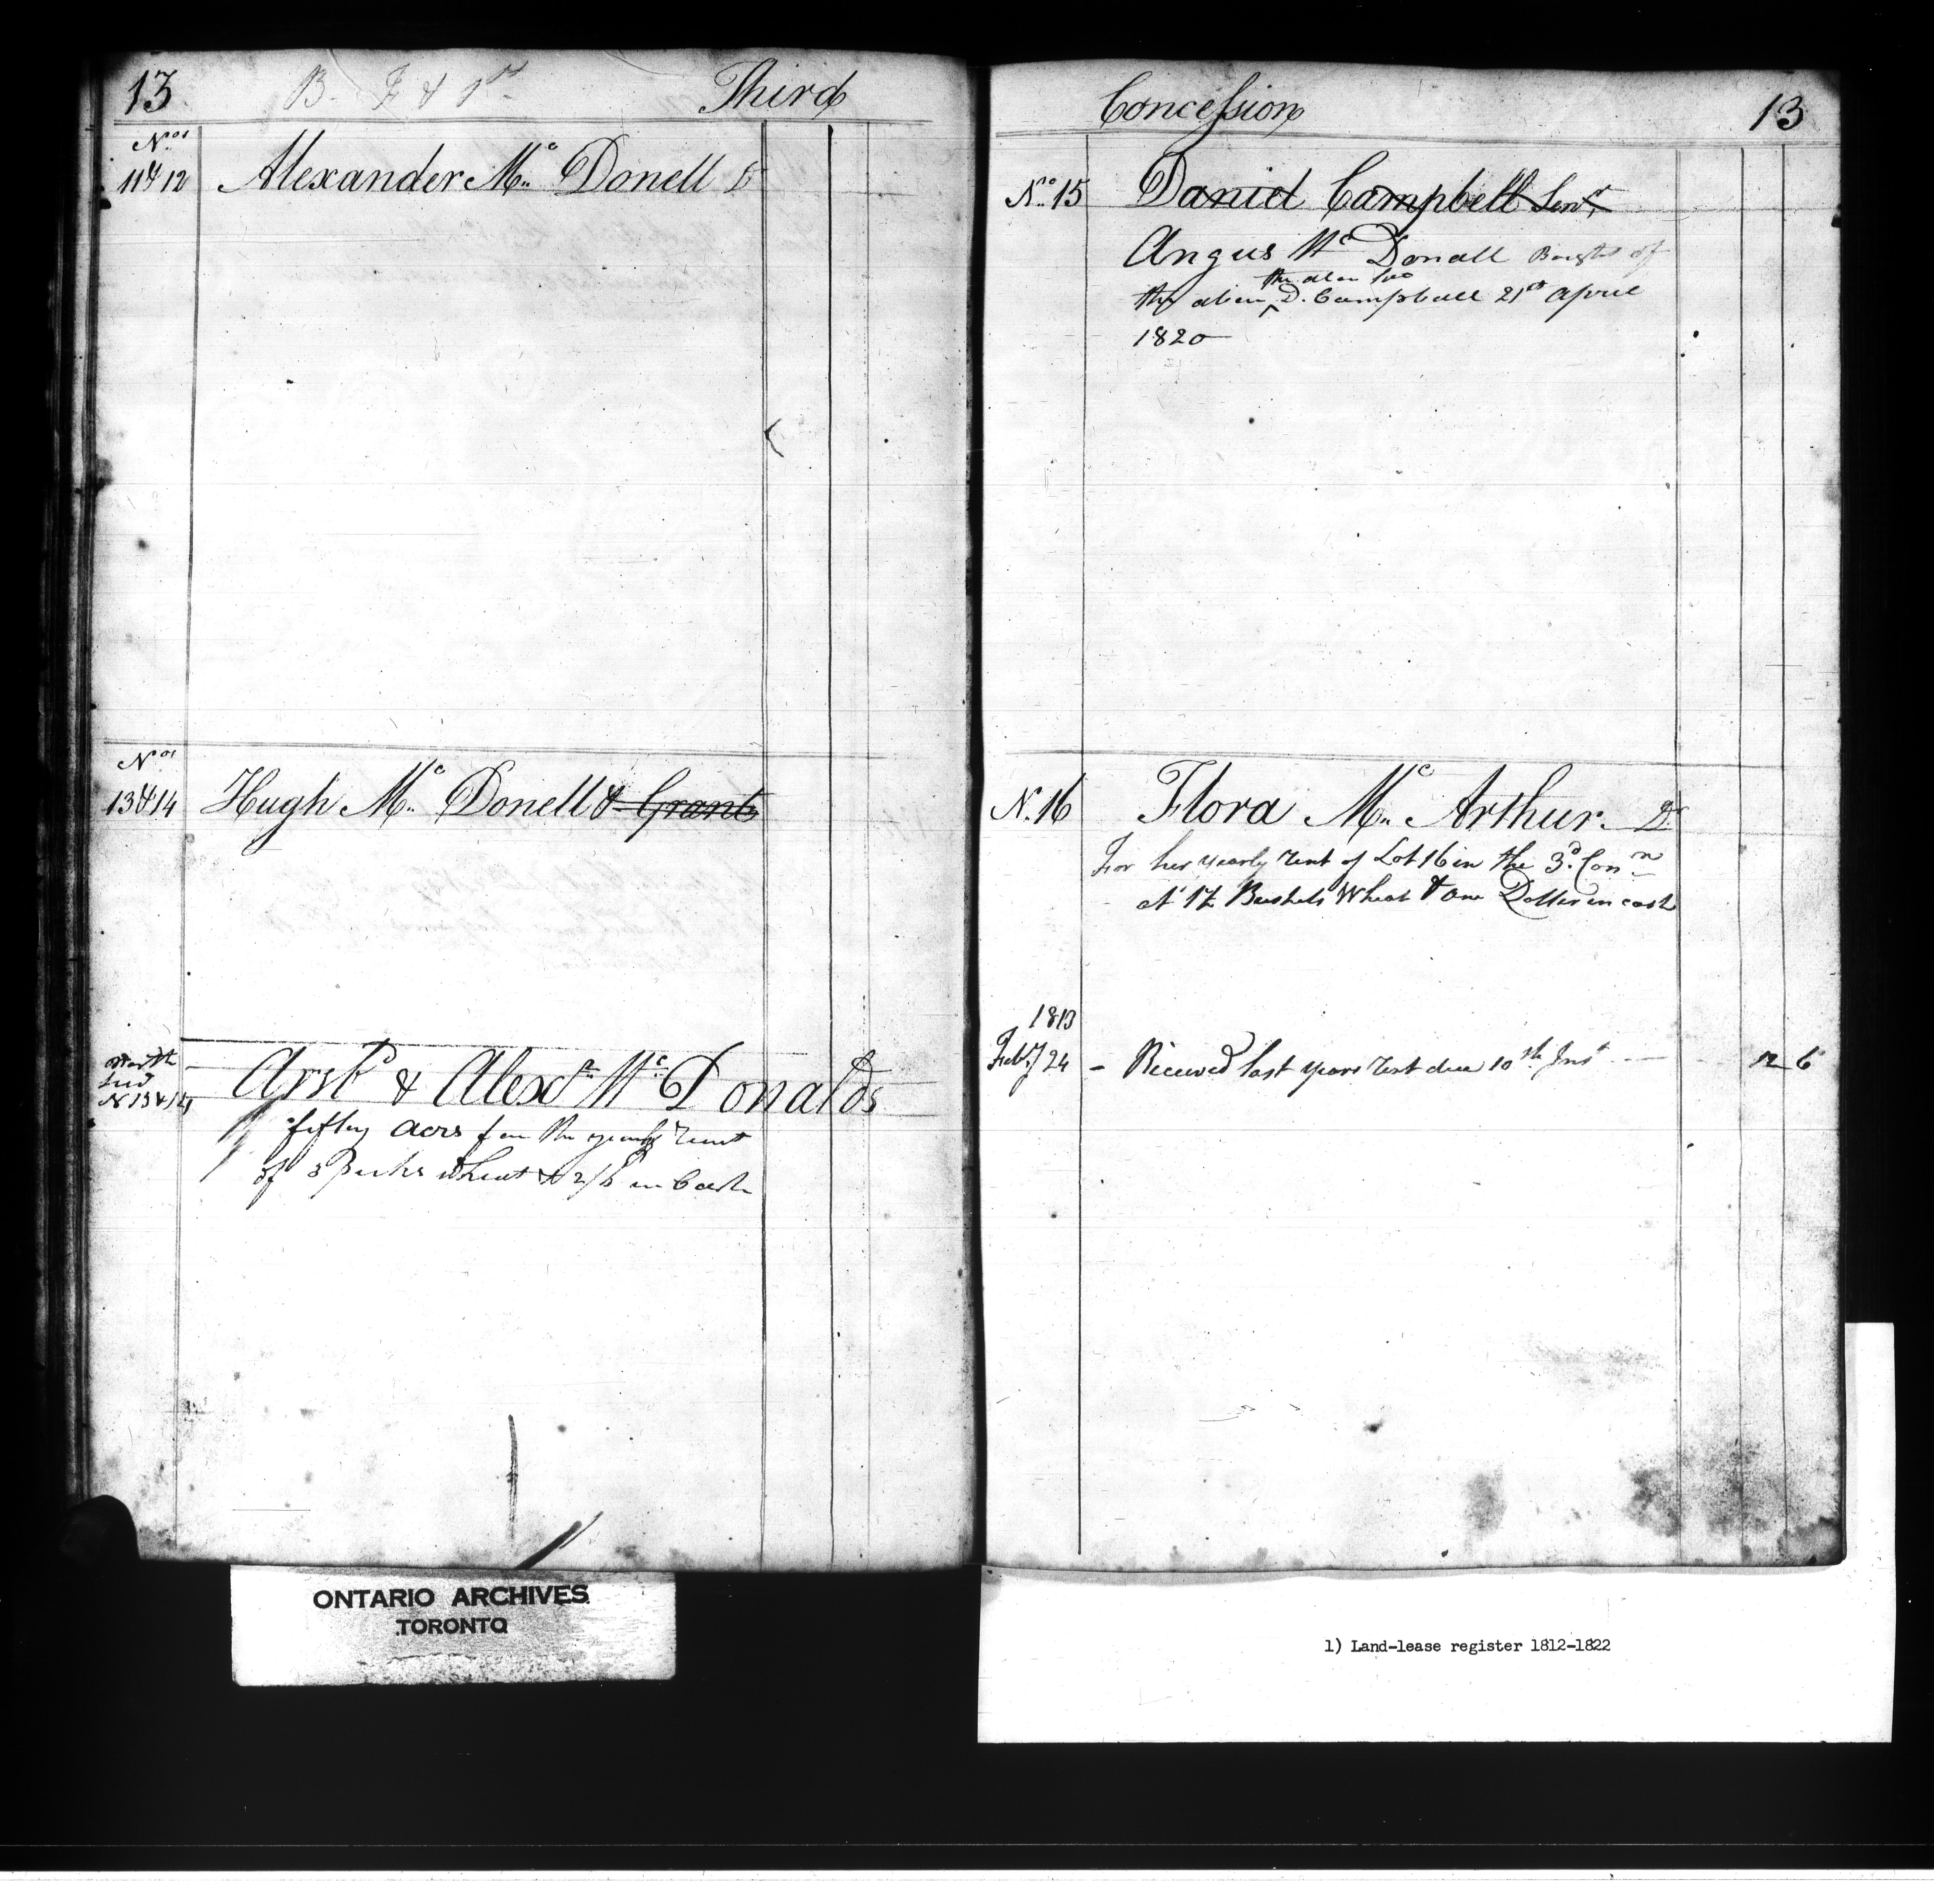 13 Third
Nos
11 & 12 Alexander Mc Donell Dr
Nos
13 & 14 Hugh Mc Donell & Grant
North
End
N 13 & 14
Archd & Alexr Mc Donalds
fifty acres for the yearly Rent
of 3 Bushs wheat & 2/6 in Cash
Concession 13
No. 15 Daniel Campbell Senr
Angus Mc Donall Bought of
the above D. Campbell 21st April
1820
N. 16 Flora Mc Arthur Dr
For her yearly rent of Lot 16 in the 3d Conn
at 1½ Bushels Wheat & One Dollar in cash
1813
Feby 24 - Received last years rent due 10th Inst 12 6
ONTARIO ARCHIVES
TORONTO
1) Land-lease register 1812-1822